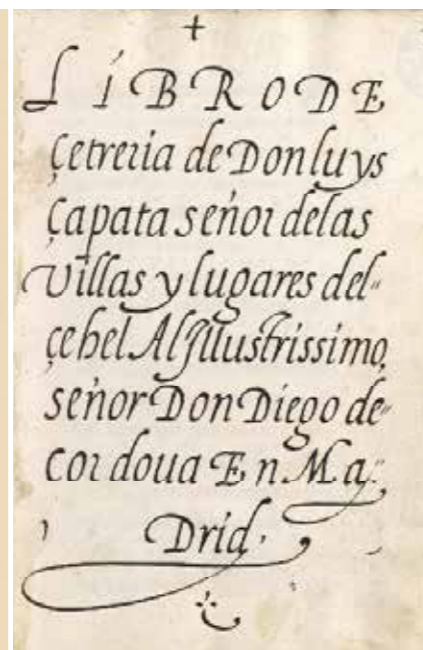 LIBRO DE
Çetreria de Don luys
Çapata señor delas
Villas y lugares del
çehel Al Jllustrissimo,
señor Don Diego de
cordoua En Ma
Drid.